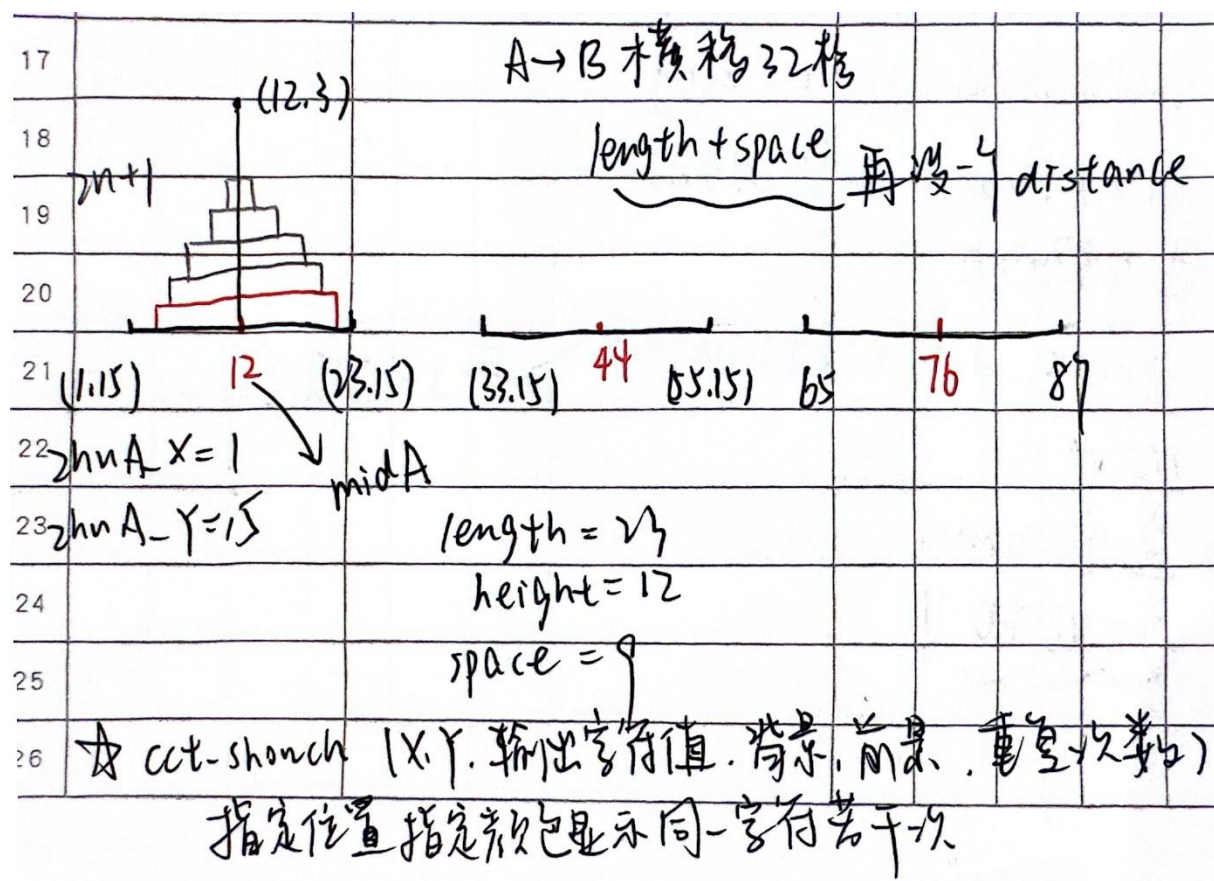 17
A→B 横移32格
(12.3)
18
length+space 再设一个 distance
2n+1
19
20
21
(1.15) 12 (23.15) (33.15) 44 (55.15) 65 76 87
22 zhuA_X=1 midA
23 zhuA_Y=15 length=23
24 height=12
25 space=9
26 ☆ cct-showch (X,Y.输出字符值.背景.前景.重复次数)
指定位置指定颜色显示同一字符若干次